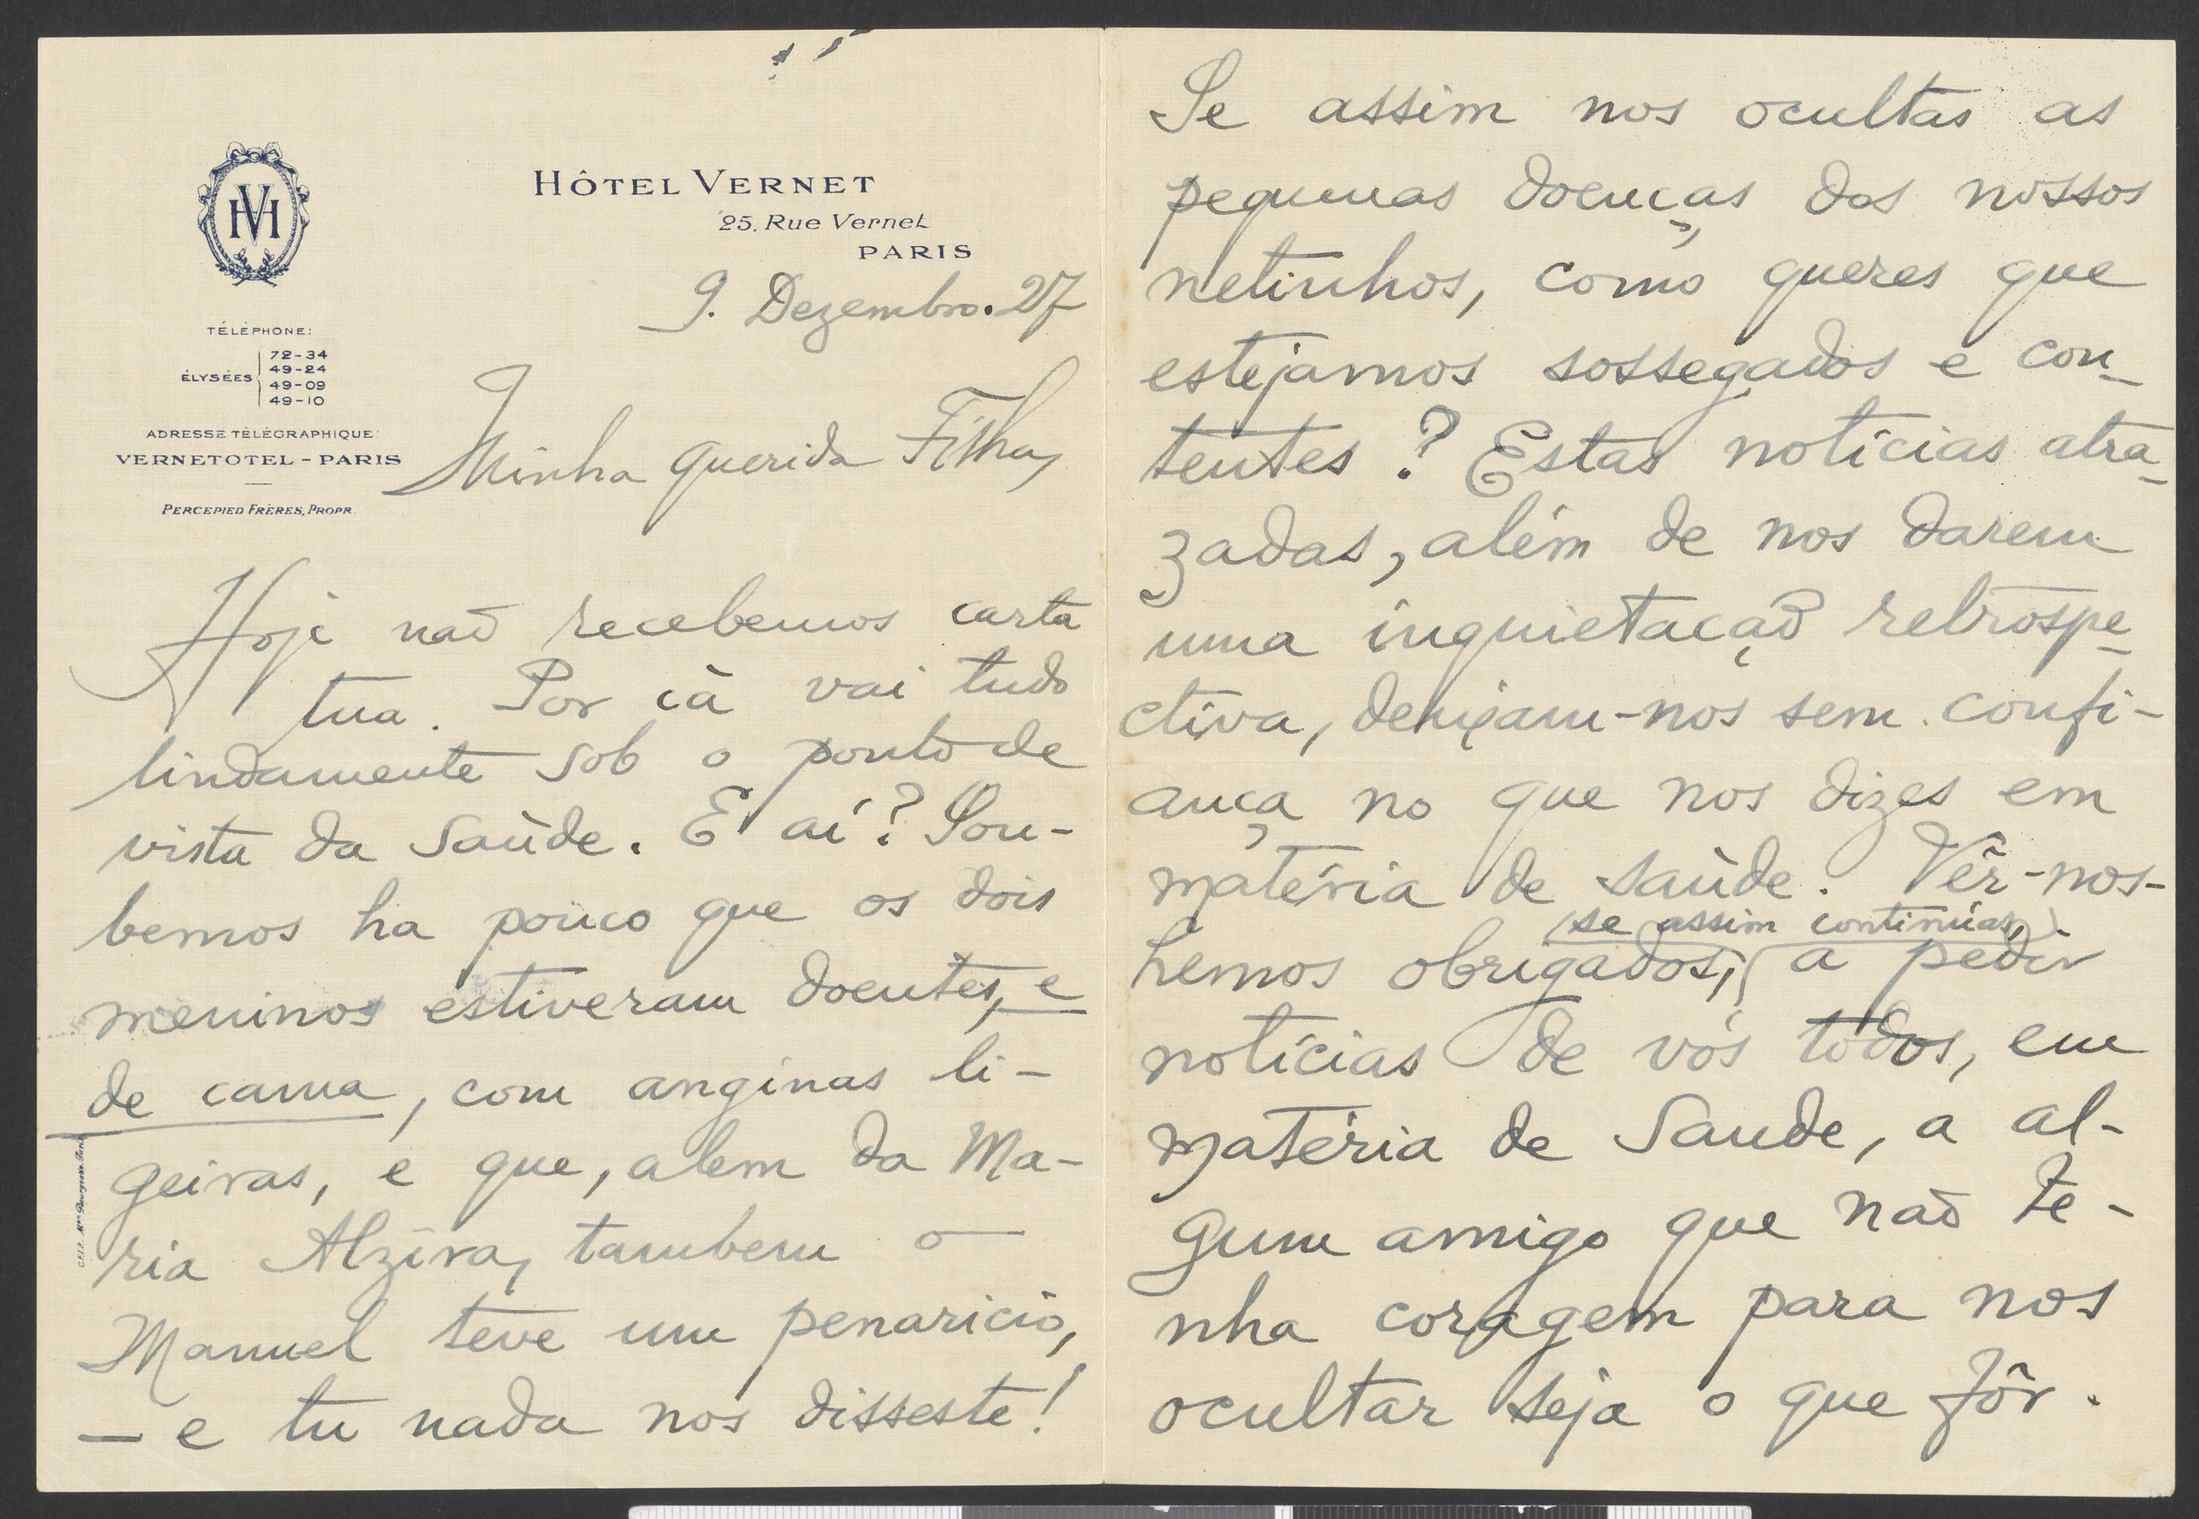 HÔTEL VERNET
25, Rue Vernet
PARIS
HV
TÉLÉPHONE:
ÉLYSÉES
72-34
49-24
49-09
49-10
ADRESSE TÉLÉGRAPHIQUE:
VERNETOTEL - PARIS
PERCEPIED FRÈRES, PROPR.
9. Dezembro. 27
Minha querida Filha,
Hoje não recebemos carta
tua. Por cà vai tudo
lindamente sob o ponto de
vista da saùde. E aí? Sou-
bemos ha pouco que os dois
meninos estiveram doentes, e
de cama, com anginas li-
geiras, e que, alem da Ma-
ria Alzira, tambem o
Manuel teve um penaricio,
— e tu nada nos disseste!
Se assim nos ocultas as
pequenas doenças dos nossos
netinhos, como queres que
estejamos sossegados e con-
tentes? Estas notícias atra-
zadas, além de nos darem
uma inquietação retrospe-
ctiva, deixam-nos sem confi-
ança no que nos dizes em
matéria de saùde. Vêr-nos-
hemos obrigados, (se assim continúas,) a pedir
notícias de vós todos, em
matéria de Saude, a al-
gum amigo que não te-
nha coragem para nos
ocultar seja o que fôr.